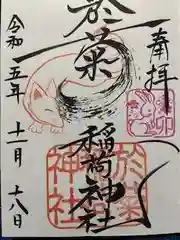 奉拝
於菊
稲荷神社
令和五年十一月十八日
於菊
稲荷
神社